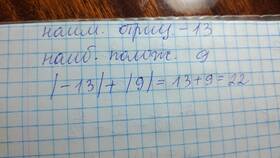 наим. отриц -13
наиб. полож. 9
|-13|+|9|=13+9=22